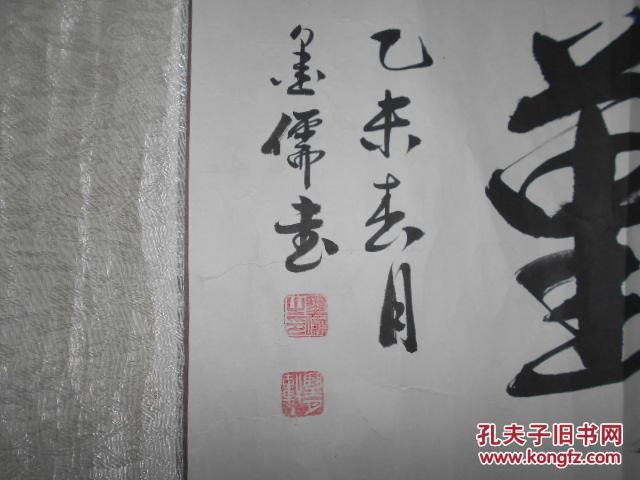 乙未春月
墨儒書
孔夫子旧书网
www.kongfz.com